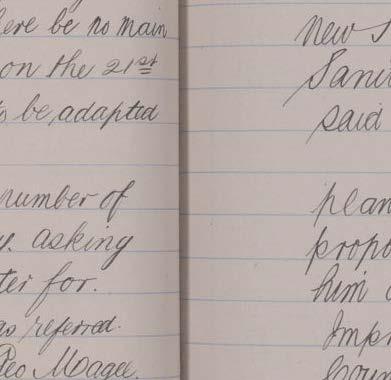 ere be no main
on the 21st
to be adapted
number of
y. asking
ter for.
as referred.
Geo Magee.
new S
Sani
said
plan
propo
him
Impr
Coun